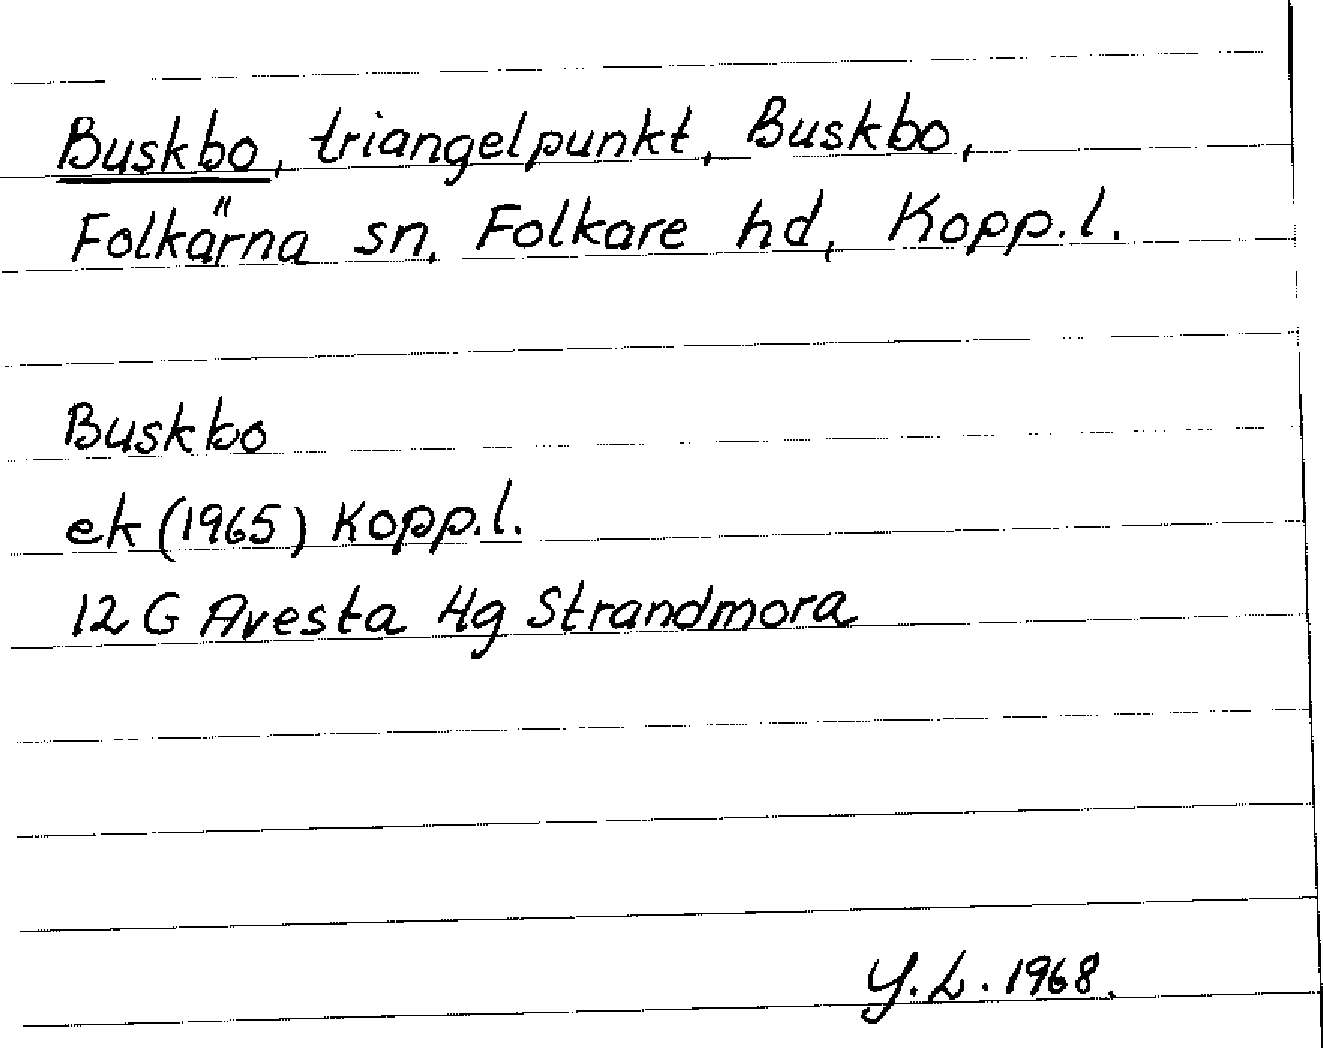 Buskbo, triangelpunkt, Buskbo,
Folkärna sn, Folkare hd, Kopp.l.
Buskbo
ek (1965) Kopp.l.
12 G Avesta 4g Strandmora
Y.L. 1968.